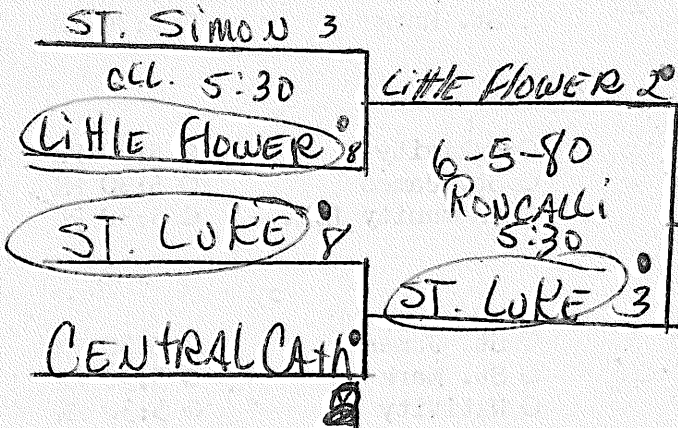 ST. SIMON 3
5:30
LittlE FlOWER 8
ST. LUKE 8
CENtRAL CAth
LittlE FlOWER 2
6-5-80
RONCALLi
5:30
ST. LUKE 3